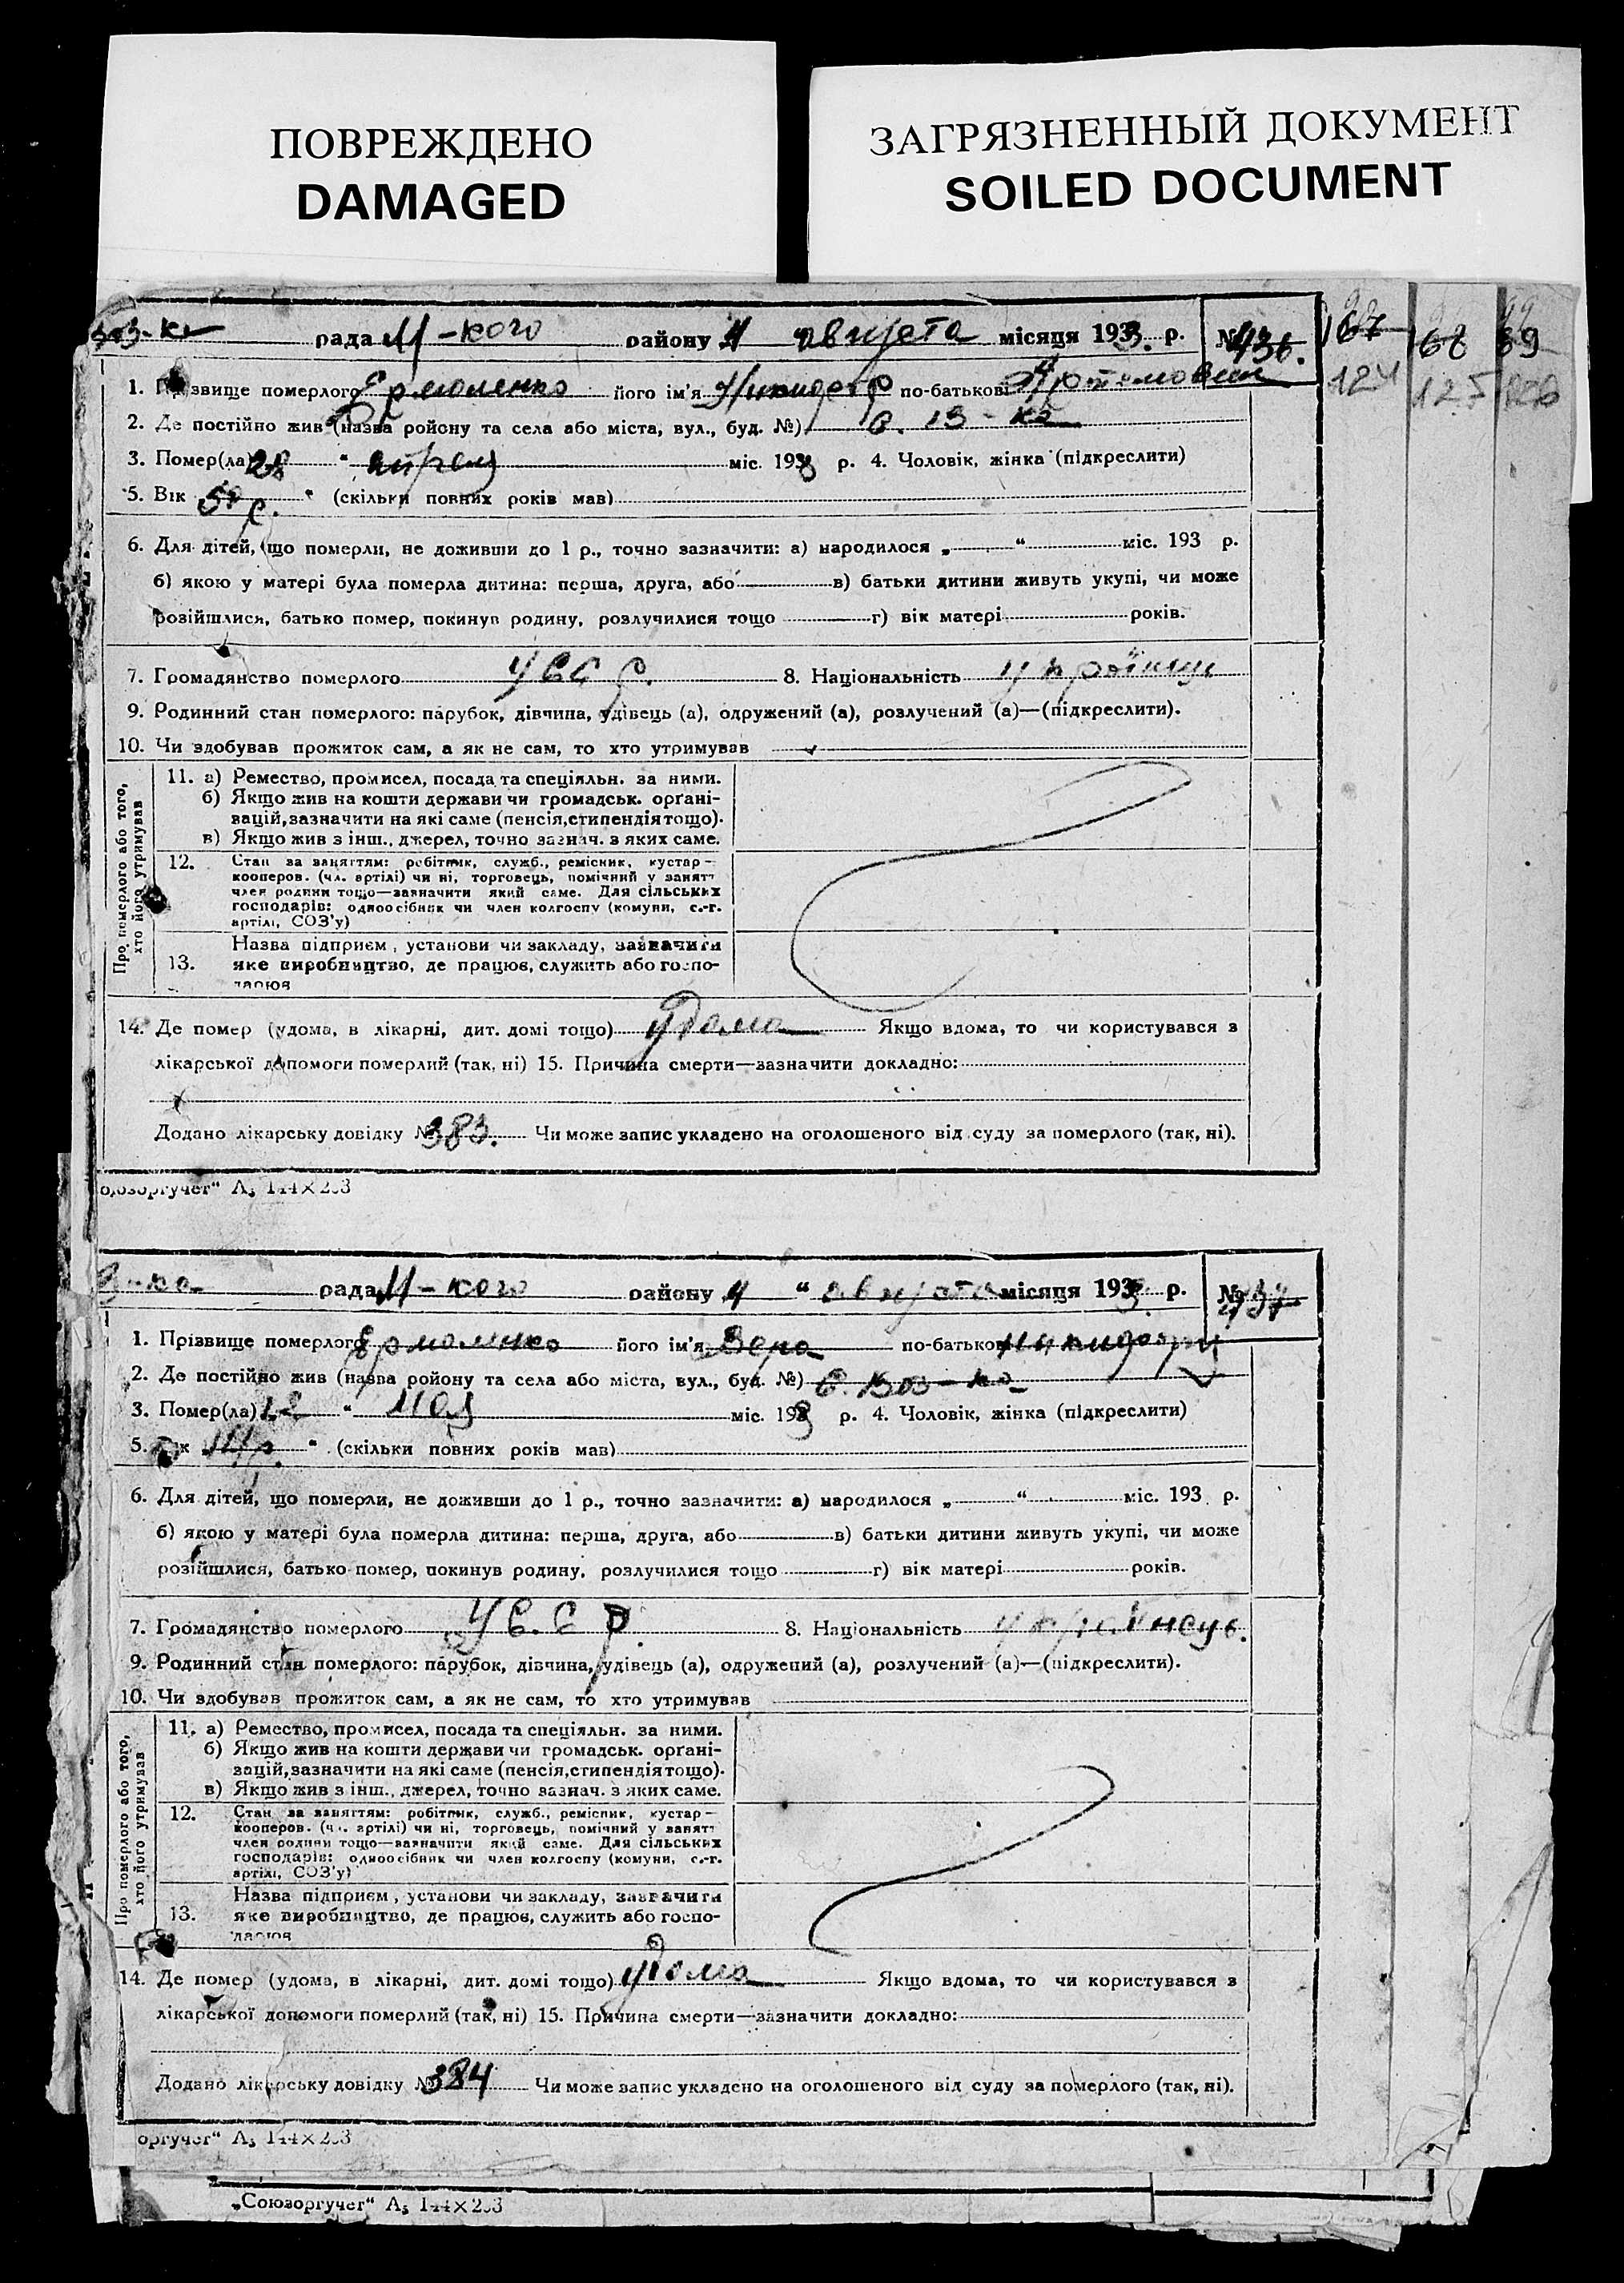 ПОВРЕЖДЕНО
DAMAGED
ЗАГРЯЗНЕННЫЙ ДОКУМЕНТ
SOILED DOCUMENT
рада М-кого району 4 августа місяця 1933. р. № 436.
167 68 89
124 125
1. Прізвище померлого Ермоленко його ім'я по-батькові Артемович
2. Де постійно жив (назва ройону та села або міста, вул., буд. №)
3. Помер(ла) 28 " апреля міс. 1933 р. 4. Чоловік, жінка (підкреслити)
5. Вік " (скільки повних років мав)
6. Для дітей, що померли, не доживши до 1 р., точно зазначити: а) народилося „ “ міс. 193 р.
б) якою у матері була померла дитина: перша, друга, або в) батьки дитини живуть укупі, чи може
розійшлися, батько помер, покинув родину, розлучилися тощо г) вік матері років.
7. Громадянство померлого УССР. 8. Національність
9. Родинний стан померлого: парубок, дівчина, удівець (а), одружений (а), розлучений (а)—(підкреслити).
10. Чи здобував прожиток сам, а як не сам, то хто утримував
Про померлого або того, хто його утримував
11. а) Ремество, промисел, посада та спеціяльн. за ними.
б) Якщо жив на кошти держави чи громадськ. орґані-
зацій, зазначити на які саме (пенсія, стипендія тощо).
в) Якщо жив з інш., джерел, точно зазнач. з яких саме.
12. Стан за заняттям: робітник, служб., ремісник, кустар—
кооперов. (чл. артілі) чи ні, торговець, помічний у занятт
член родини тощо—зазначити який саме. Для сільських
господарів: одноосібник чи член колгоспу (комуни, с.-г.
артілі, СОЗ'у)
Назва підприєм, установи чи закладу, зазначити
13. яке виробництво, де працює, служить або госпо-
дарює
14. Де помер (удома, в лікарні, дит. домі тощо) удома Якщо вдома, то чи користувався з
лікарської допомоги померлий (так, ні) 15. Причина смерти—зазначити докладно:
Додано лікарську довідку № 383. Чи може запис укладено на оголошеного від суду за померлого (так, ні).
оюзоргучет“ А5 144×203
рада М-кого району 4 “ августа місяця 1933 р. № 437
1. Прізвище померлого Ермоленко його ім'я Вера по-батькові
2. Де постійно жив (назва ройону та села або міста, вул., буд. №)
3. Помер(ла) “ мая міс. 1933 р. 4. Чоловік, жінка (підкреслити)
5. Вік „ 14 р. “ (скільки повних років мав)
6. Для дітей, що померли, не доживши до 1 р., точно зазначити: а) народилося „ “ міс. 193 р.
б) якою у матері була померла дитина: перша, друга, або в) батьки дитини живуть укупі, чи може
розійшлися, батько помер, покинув родину, розлучилися тощо г) вік матері років.
7. Громадянство померлого УССР. 8. Національність
9. Родинний стан померлого: парубок, дівчина, удівець (а), одружений (а), розлучений (а)—(підкреслити).
10. Чи здобував прожиток сам, а як не сам, то хто утримував
Про померлого або того, хто його утримував
11. а) Ремество, промисел, посада та спеціяльн. за ними.
б) Якщо жив на кошти держави чи громадськ. орґані-
зацій, зазначити на які саме (пенсія, стипендія тощо).
в) Якщо жив з інш., джерел, точно зазнач. з яких саме.
12. Стан за заняттям: робітник, служб., ремісник, кустар—
кооперов. (чл. артілі) чи ні, торговець, помічний у занятт
член родини тощо—зазначити який саме. Для сільських
господарів: одноосібник чи член колгоспу (комуни, с.-г.
артілі, СОЗ'у)
Назва підприєм, установи чи закладу, зазначити
13. яке виробництво, де працює, служить або госпо-
дарює
14. Де помер (удома, в лікарні, дит. домі тощо) удома Якщо вдома, то чи користувався з
лікарської допомоги померлий (так, ні) 15. Причина смерти—зазначити докладно:
Додано лікарську довідку № 384 Чи може запис укладено на оголошеного від суду за померлого (так, ні).
оргучет“ А5 144×203
„Союзоргучет“ А5 144×203